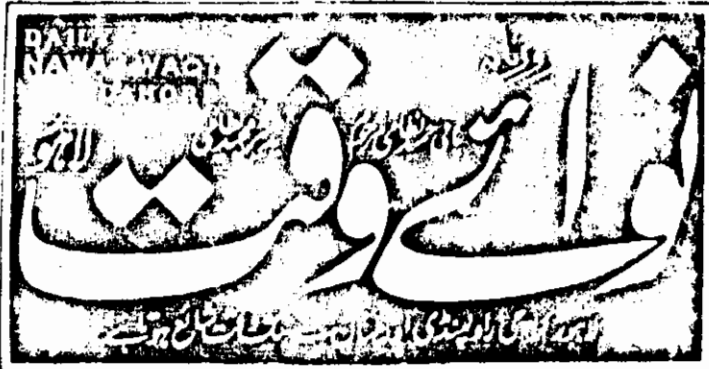 DAILY
NAWA-I-WAQT
LAHORE
روزنامہ
نوائے وقت
لاہور
لاہور، کراچی، راولپنڈی اور ملتان سے بیک وقت شائع ہوتا ہے